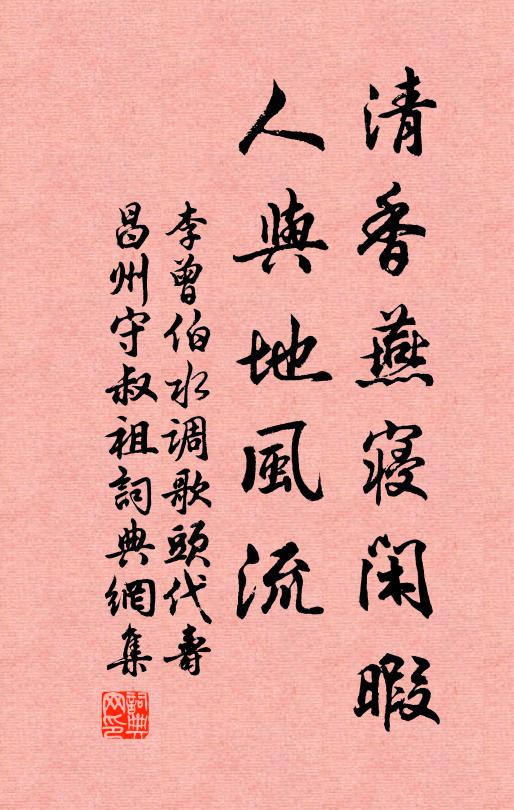 清香燕寢閑暇
人與地風流
李曾伯水调歌頭代壽
昌州守叔祖詞典網集
詞典網印